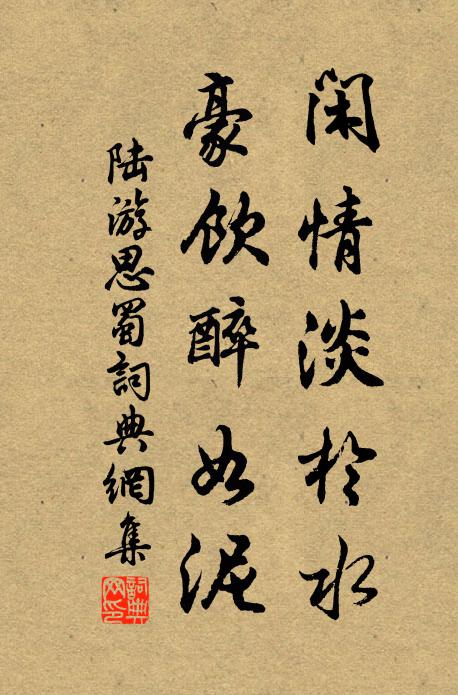 閑情淡於水
豪飲醉如泥
陆游思蜀詞典網集
詞典
网印